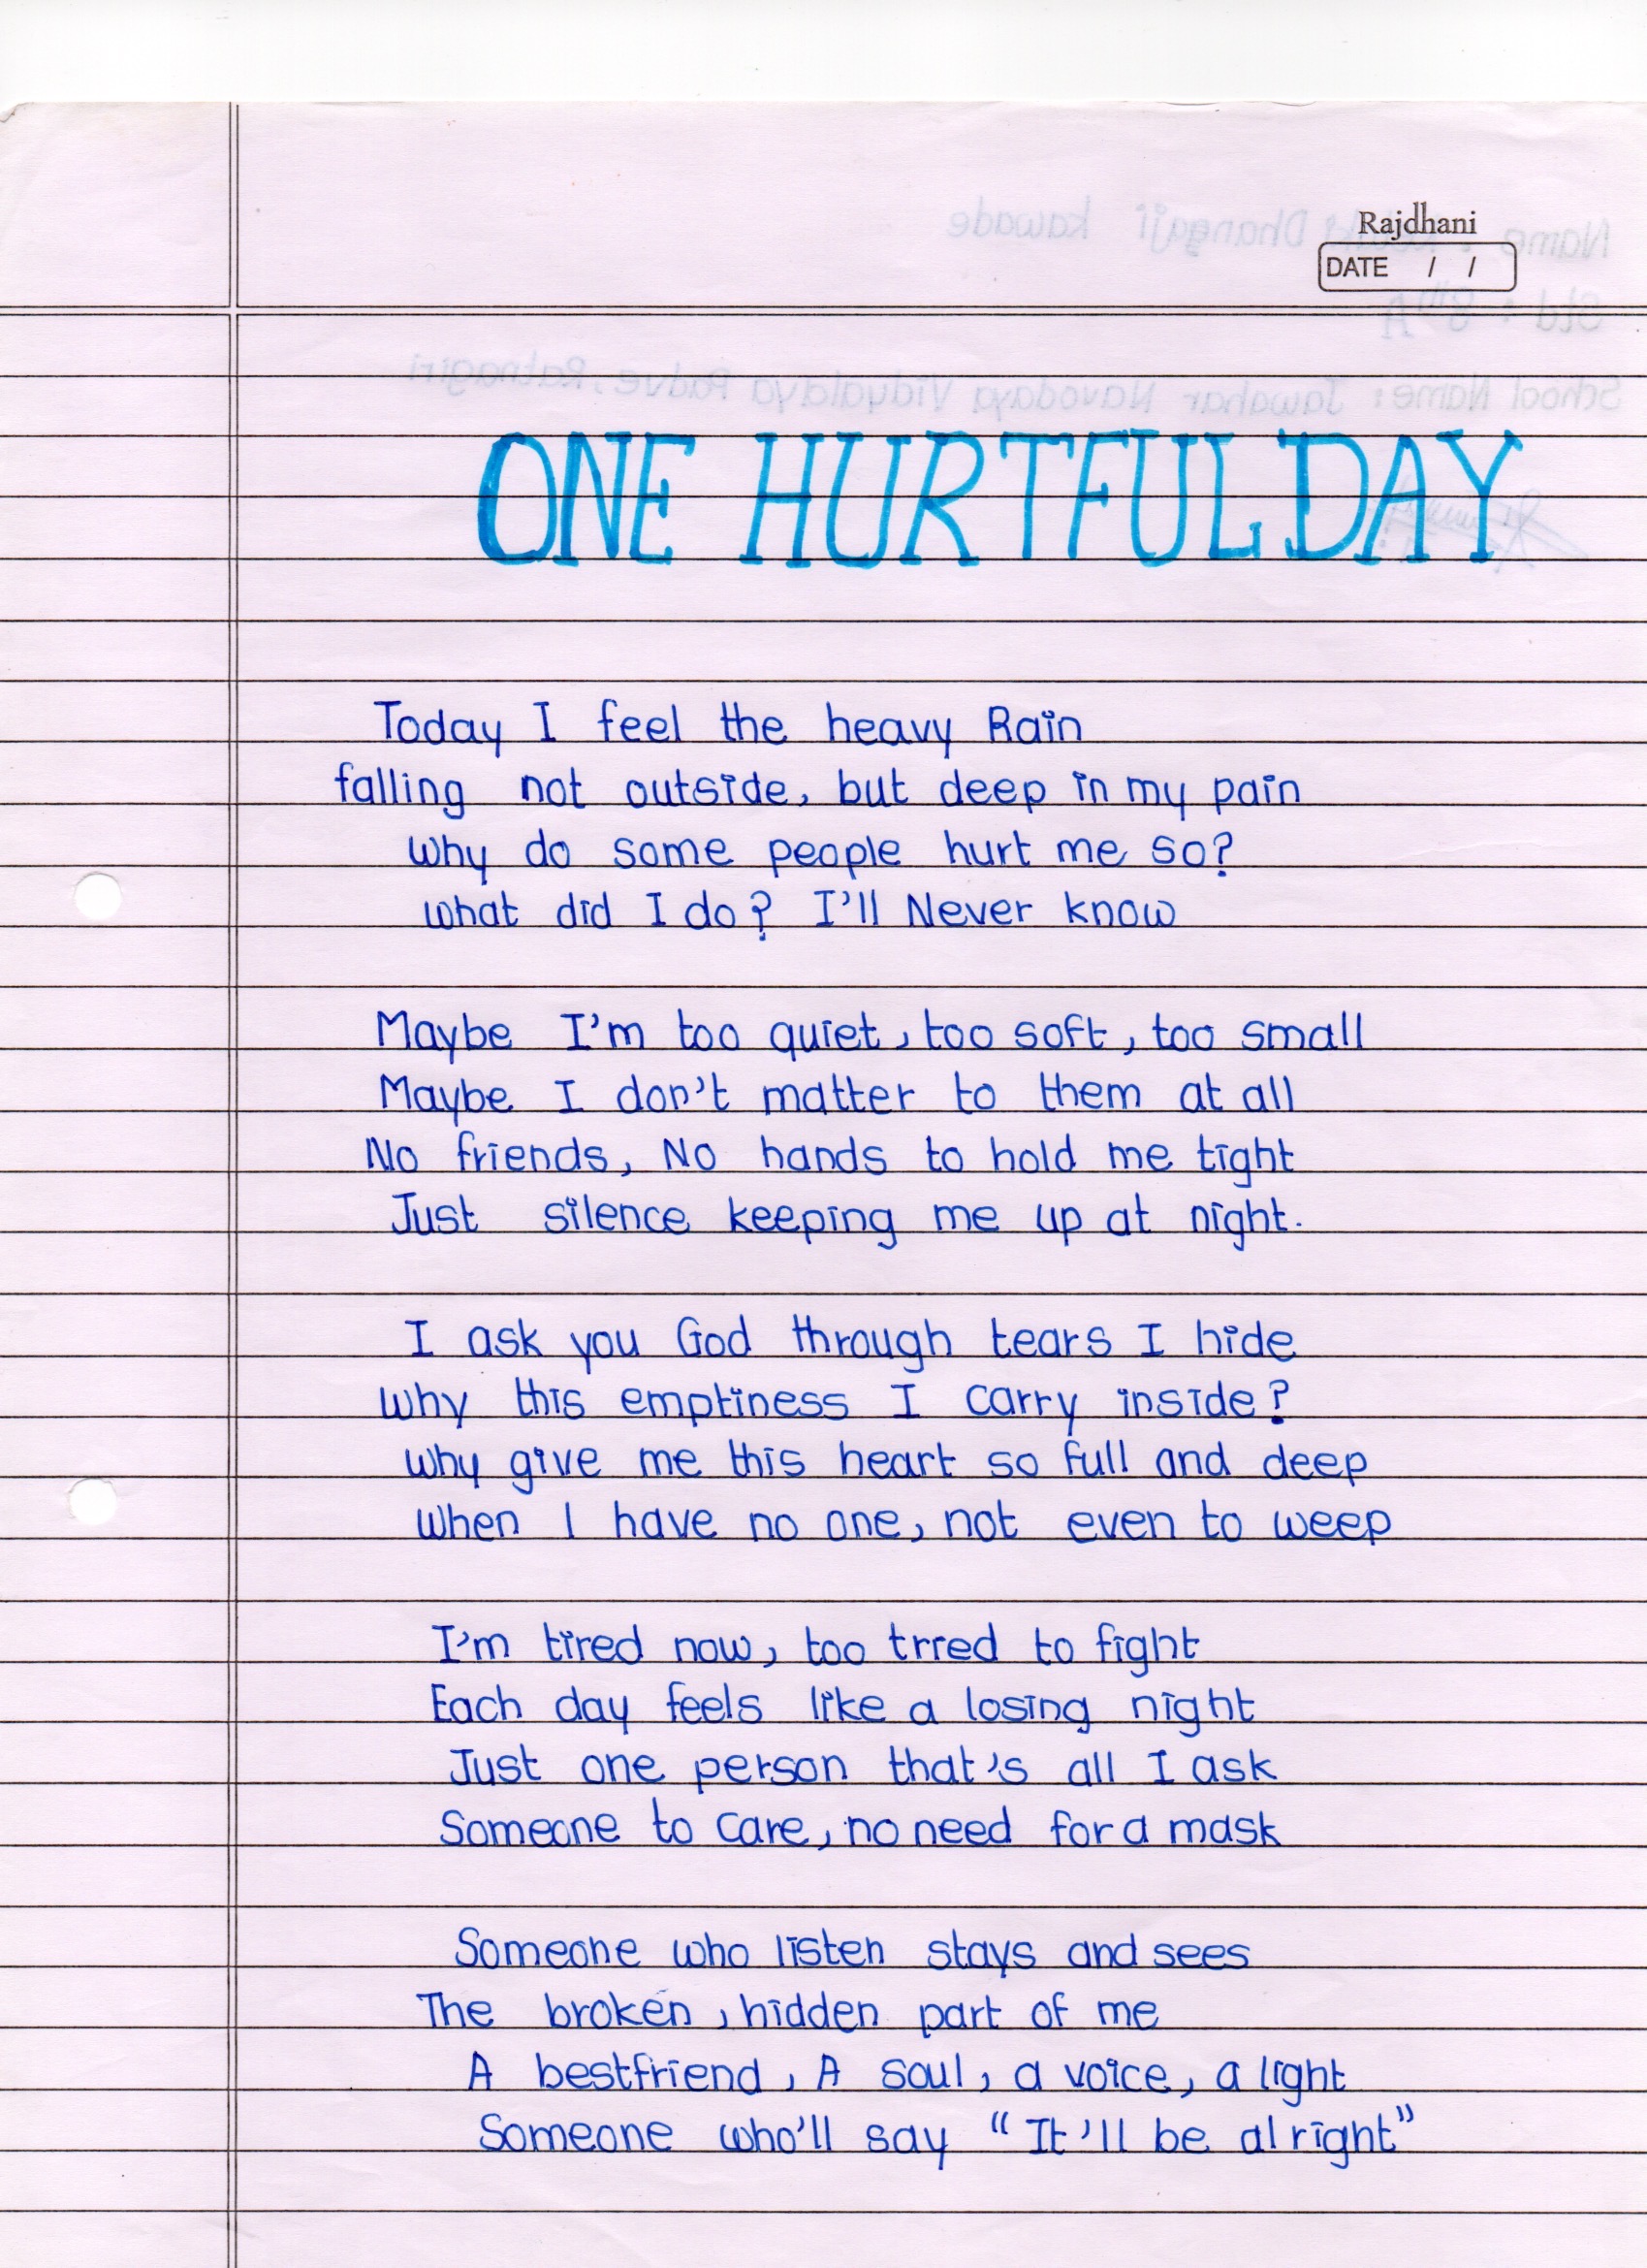 Rajdhani
DATE / /
ONE HURTFUL DAY
Today I feel the heavy Rain
falling not outside, but deep in my pain
why do some people hurt me so?
what did I do? I'll Never know
Maybe I'm too quiet, too soft, too small
Maybe I don't matter to them at all
No friends, No hands to hold me tight
Just silence keeping me up at night.
I ask you God through tears I hide
why this emptiness I carry inside?
why give me this heart so full and deep
when I have no one, not even to weep
I'm tired now, too trred to fight
Each day feels like a losing night
Just one person that's all I ask
Someone to care, no need for a mask
Someone who listen stays and sees
The broken, hidden part of me
A bestfriend, A soul, a voice, a light
Someone who'll say "It'll be alright"